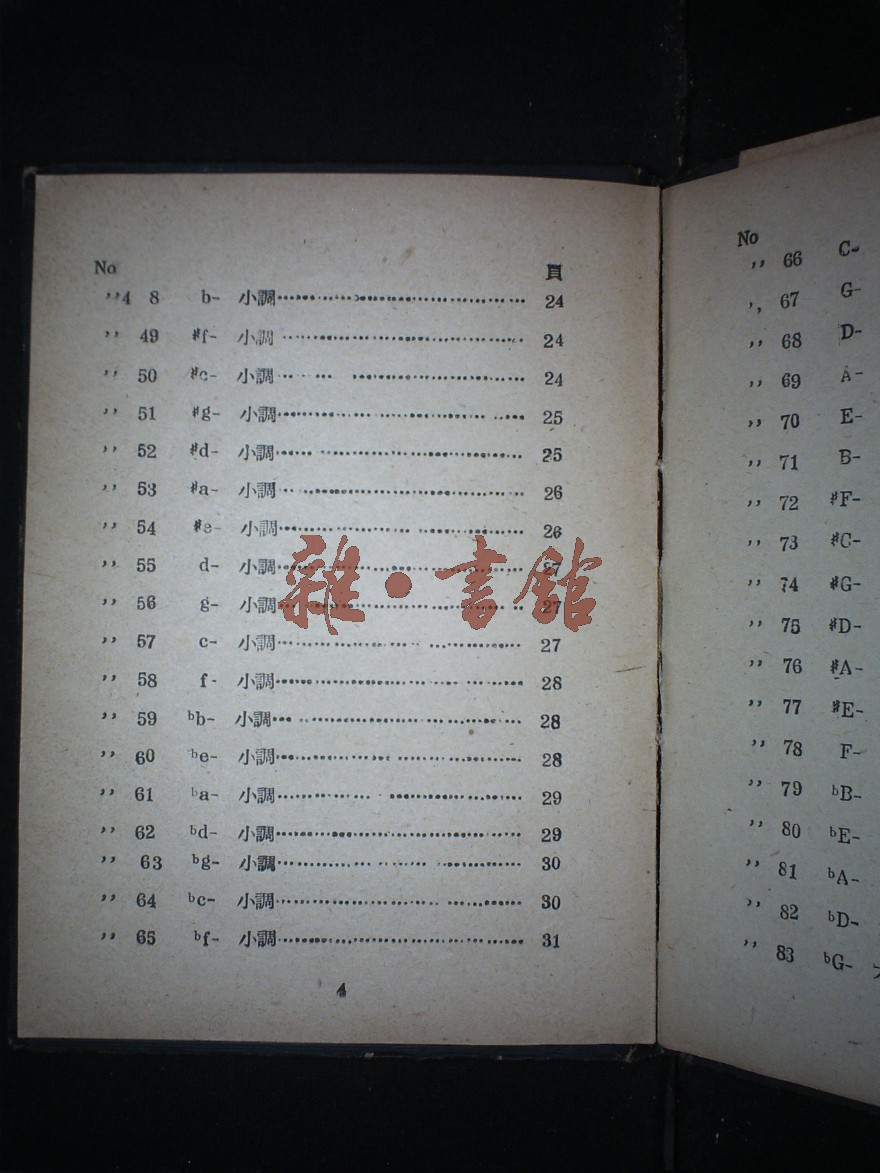 No 頁
,,4 8 b- 小調 24
,, 49 #f- 小調 24
,, 50 #c- 小調 24
,, 51 #g- 小調 25
,, 52 #d- 小調 25
,, 53 #a- 小調 26
,, 54 #e- 小調 26
,, 55 d- 小調 27
,, 56 g- 小調 27
,, 57 c- 小調 27
,, 58 f- 小調 28
,, 59 ᵇb- 小調 28
,, 60 ᵇe- 小調 28
,, 61 ᵇa- 小調 29
,, 62 ᵇd- 小調 29
,, 63 ᵇg- 小調 30
,, 64 ᵇc- 小調 30
,, 65 ᵇf- 小調 31
4
雜·書館
No
,, 66 C-
,, 67 G-
,, 68 D-
,, 69 A-
,, 70 E-
,, 71 B-
,, 72 #F-
,, 73 #C-
,, 74 #G-
,, 75 #D-
,, 76 #A-
,, 77 #E-
,, 78 F-
,, 79 ᵇB-
,, 80 ᵇE-
,, 81 ᵇA-
,, 82 ᵇD-
,, 83 ᵇG-